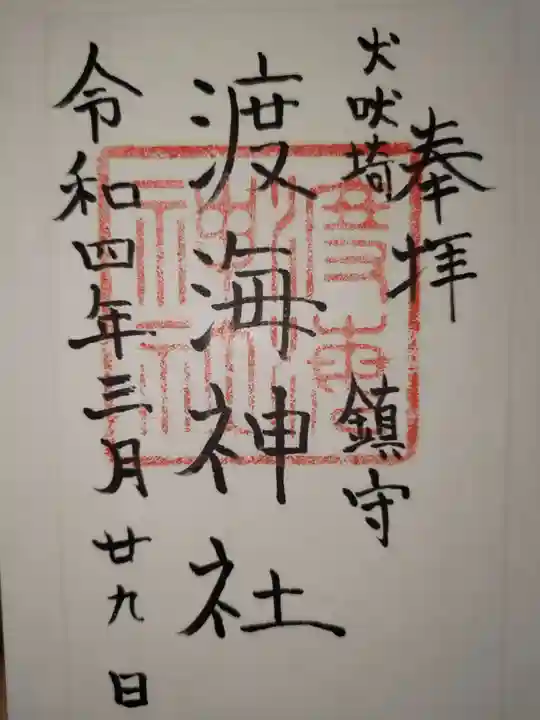 奉拝
犬吠埼 鎮守
渡海神社
令和四年三月廿九日